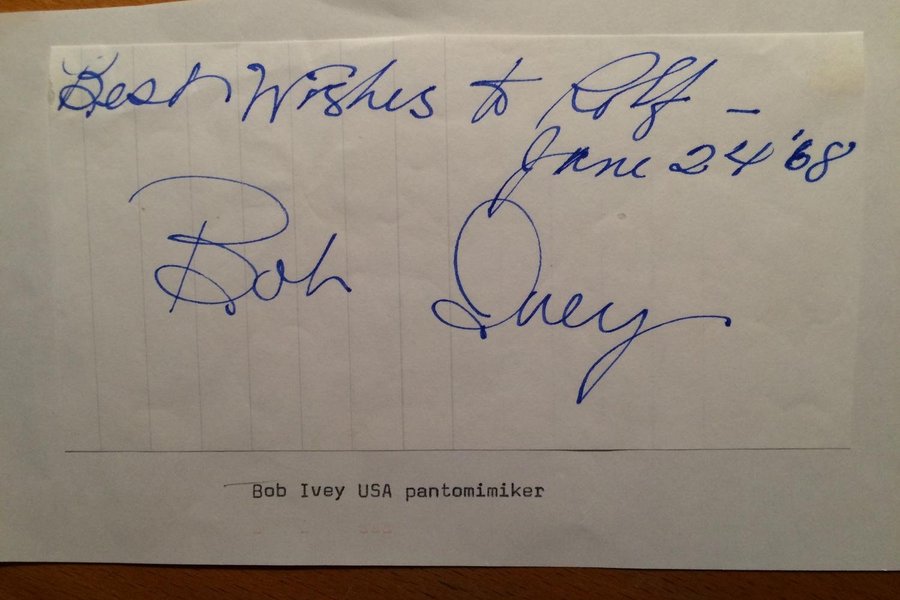 Best Wishes to Rolf –
June 24 '68
Bob Ivey
Bob Ivey USA pantomimiker